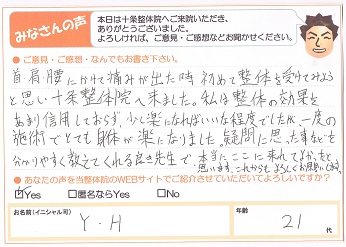 みなさんの声
本日は十条整体院へご来院いただき、
ありがとうございました。
よろしければ、ご意見・ご感想などお聞かせください。
● ご意見・ご感想・なんでもお書き下さい。
首肩腰にかけて痛みが出た時、初めて整体を受けてみよう
と思い十条整体院へ来ました。私は整体の効果を
あまり信用しておらず、少し楽になればいいな程度でしたが、一度の
施術でとても身体が楽になりました。疑問に思った事などを
分かりやすく教えてくれる良き先生で、本当にここに来れてよかったと
思います。これからもよろしくお願いします。
● あなたの声を当整体院のWEBサイトでご紹介させていただいてよろしいですか?
Yes □匿名ならYes □No
お名前(イニシャル可) 年齢
Y・H 21 代